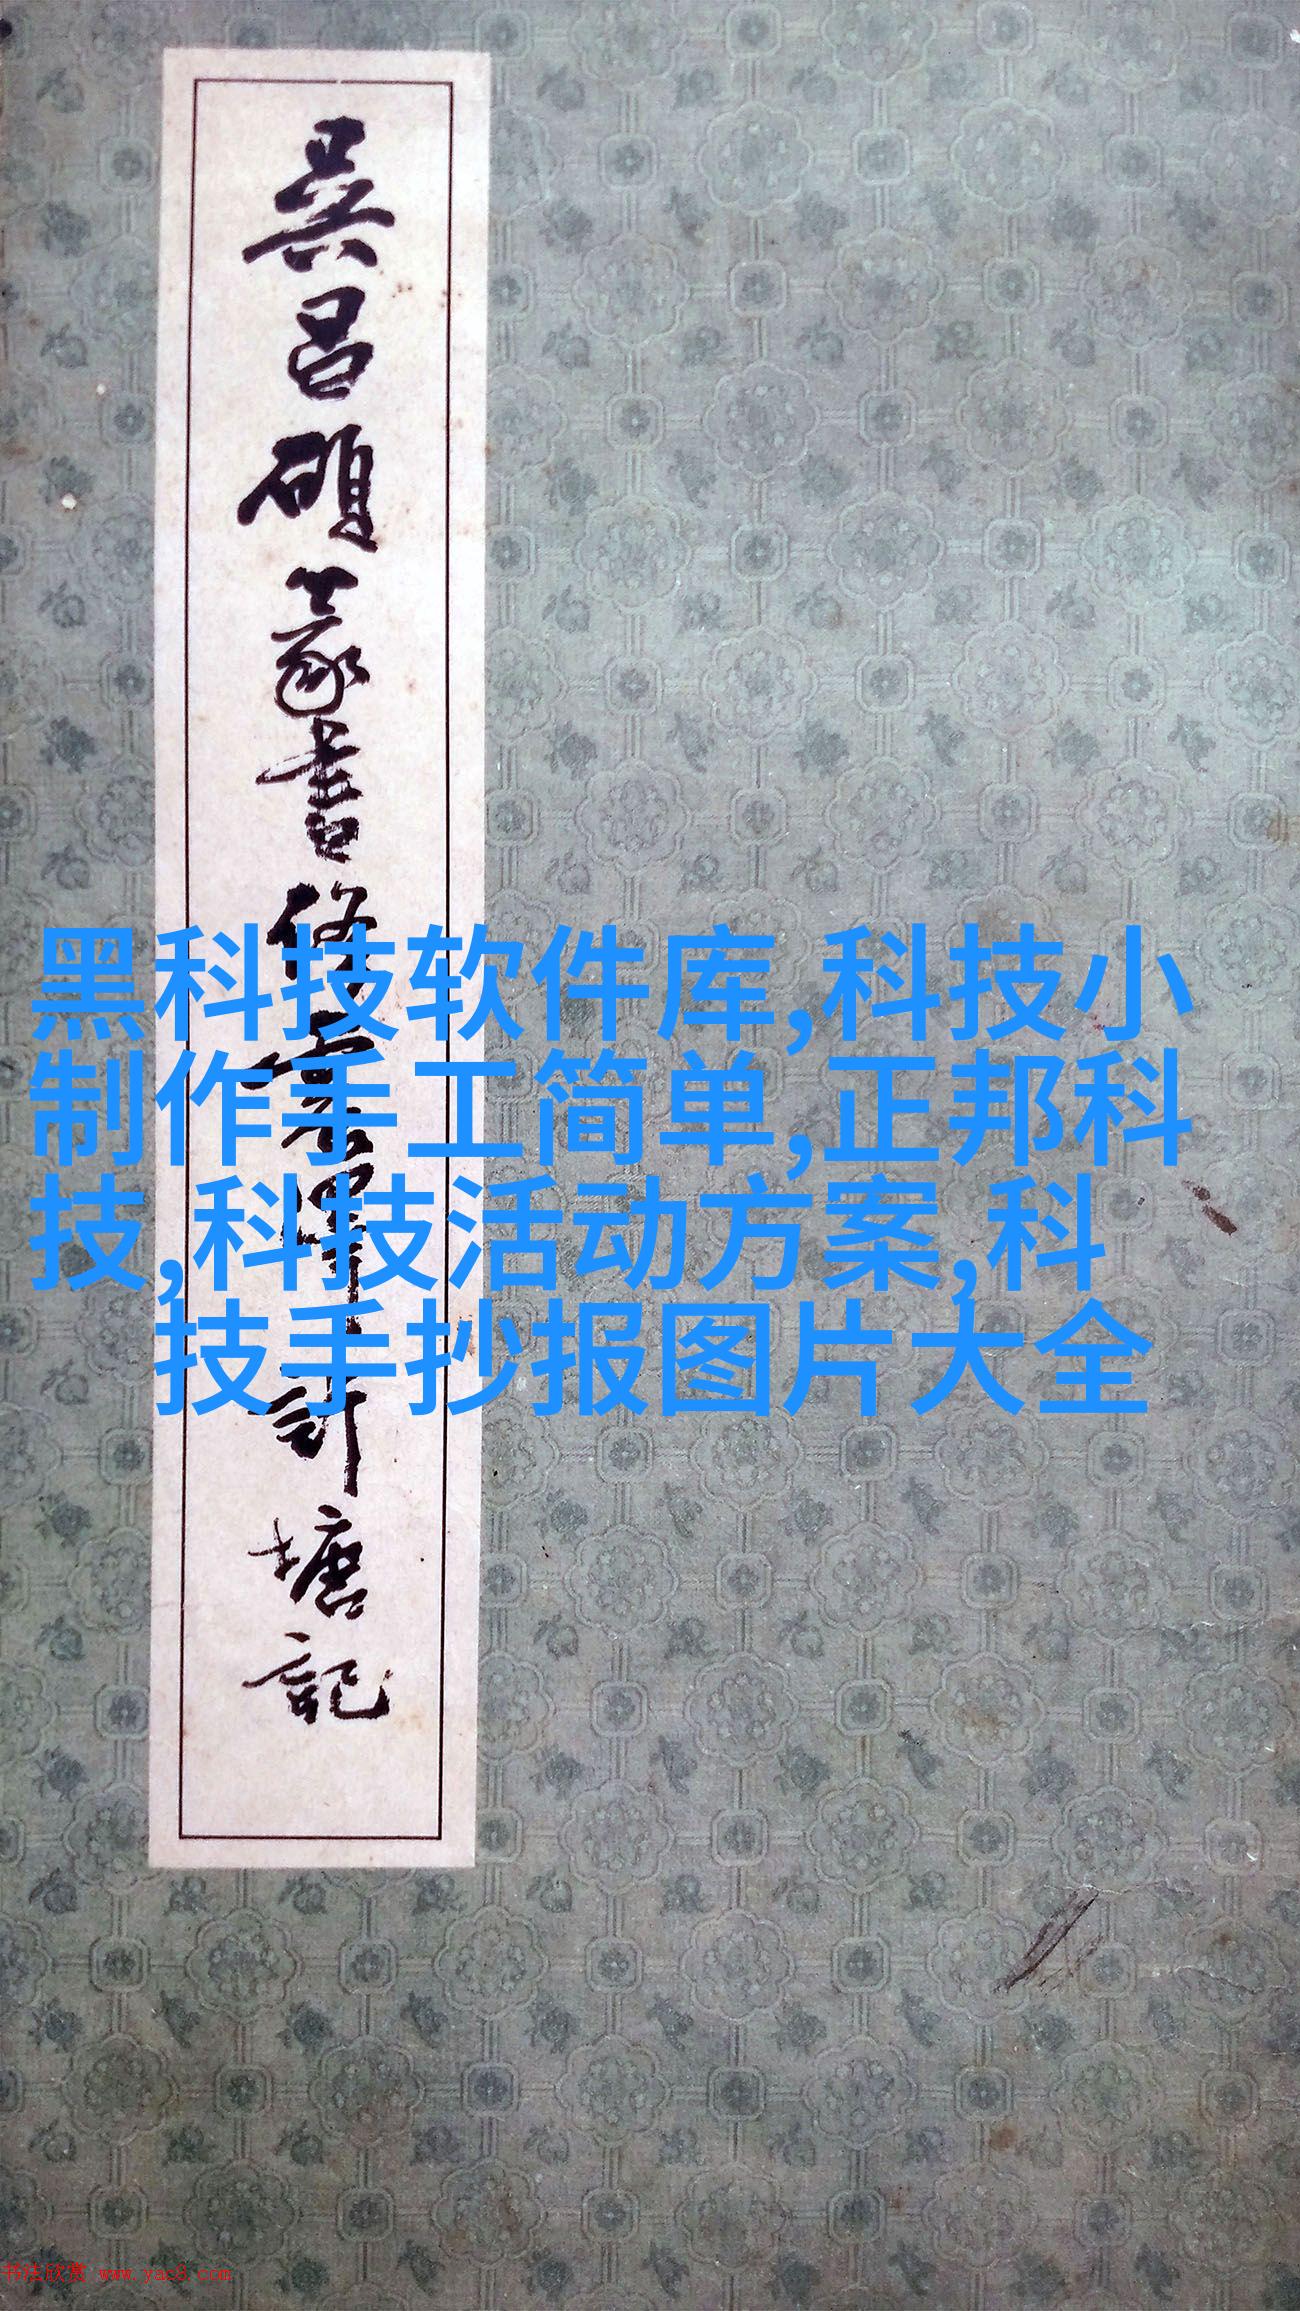 吴昌硕篆书修震泽许塘记
黑科技软件库,科技小
制作手工简单,正邦科
技,科技活动方案,科
技手抄报图片大全
书法欣赏 www.yac8.com